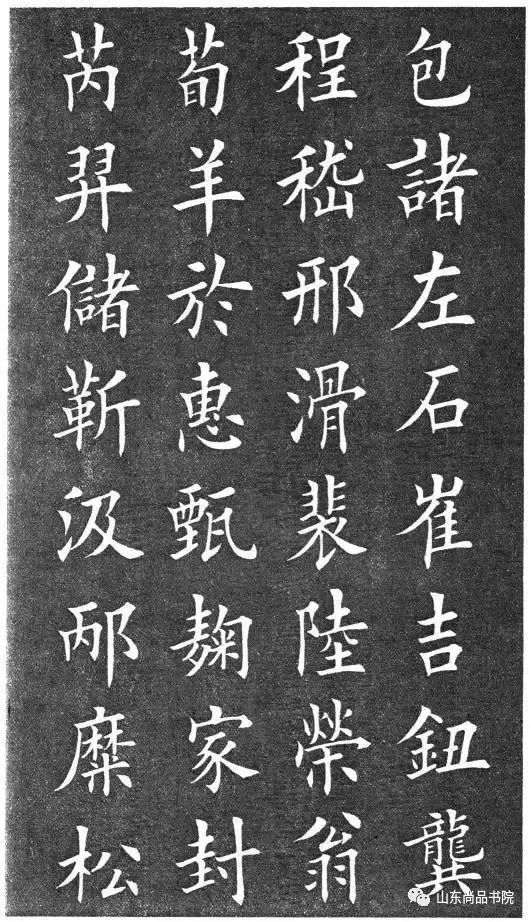 包諸左石崔吉鈕龔
程嵇邢滑裴陸榮翁
荀羊於惠甄麴家封
芮羿儲靳汲邴糜松
山东尚品书院